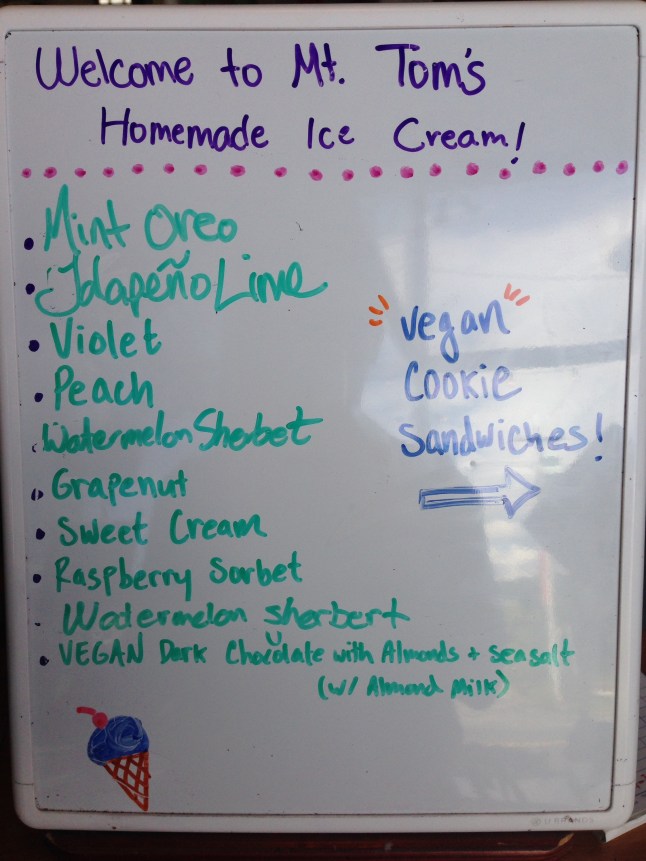 Welcome to Mt. Tom's
Homemade Ice Cream!
Mint Oreo
Jalapeño Lime
Violet
Peach
Watermelon Sherbet
Grapenut
Sweet Cream
Raspberry Sorbet
Watermelon Sherbert
VEGAN Dark Chocolate with Almonds + sea salt
(w/ Almond Milk)
vegan
COOKIE
sandwiches!
U BRANDS